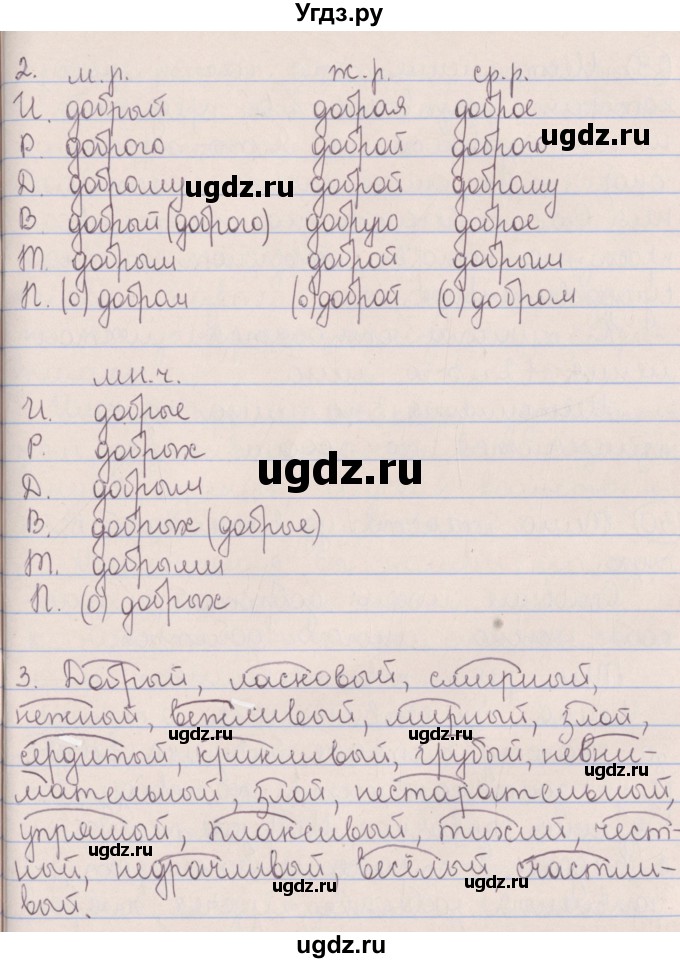 Угдз.ру
2. м.р. ж.р. ср.р.
И. добрый добрая доброе
Р. доброго доброй доброго
Д. доброму доброй доброму
В. добрый (доброго) добрую доброе
Т. добрым доброй добрым
П. (о) добром (о) доброй (о) добром
мн.ч.
И. добрые
Р. добрых
Д. добрым
В. добрых (добрые)
Т. добрыми
П. (о) добрых
3. Добрый, ласковый, смирный,
нежный, вежливый, мирный, злой,
сердитый, крикливый, грубый, невни-
мательный, злой, нестарательный,
упрямый, плаксивый, тихий, чест-
ный, недрачливый, весёлый, счастли-
вый.
ugdz.ru
ugdz.ru
ugdz.ru
ugdz.ru
ugdz.ru
ugdz.ru
ugdz.ru
ugdz.ru
ugdz.ru
ugdz.ru
ugdz.ru